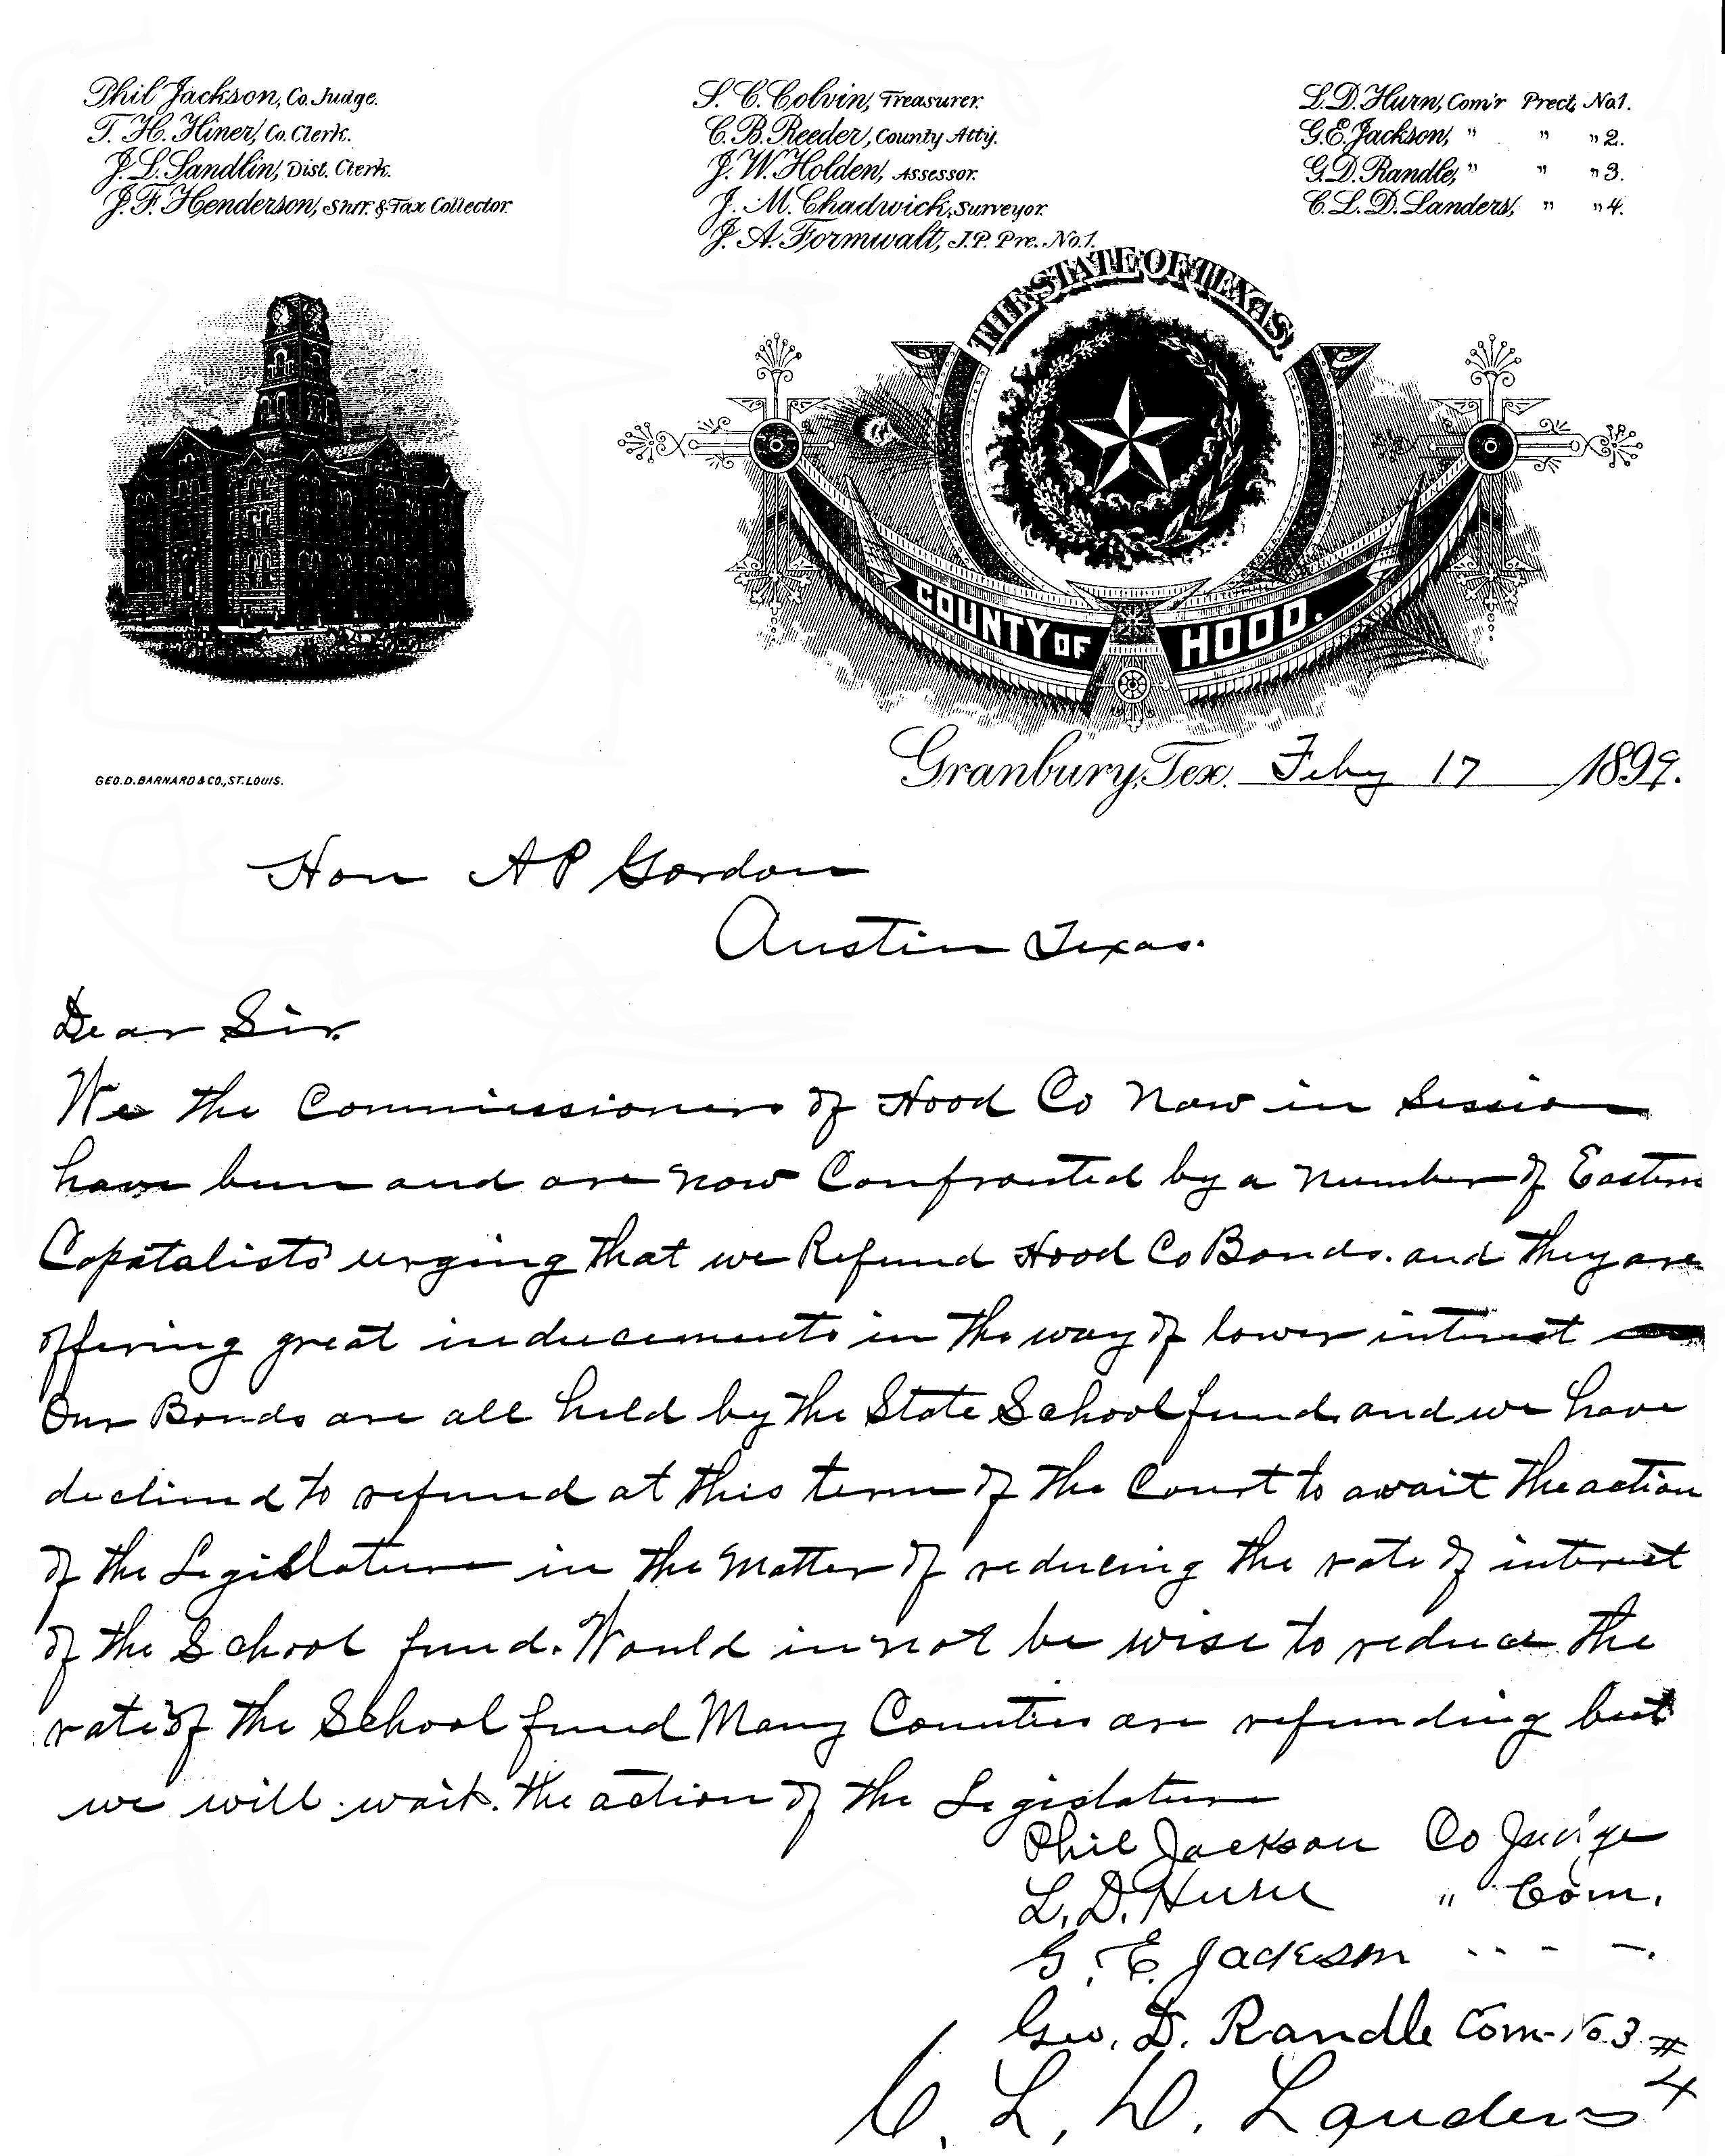 Phil Jackson, Co. Judge.
T. H. Hiner, Co. Clerk.
J. L. Sandlin, Dist. Clerk.
J. F. Henderson, Shff. & Tax Collector.
S. C. Colvin, Treasurer.
C. B. Reeder, County Att'y.
J. W. Holden, Assessor.
J. M. Chadwick, Surveyor.
J. A. Formwalt, J. P. Pre. No. 1.
L. D. Hurn, Com'r Prect. No. 1.
G. E. Jackson, " " " 2.
G. D. Randle, " " " 3.
C. L. D. Landers, " " 4.
THE STATE OF TEXAS
COUNTY OF HOOD.
GEO. D. BARNARD & CO., ST. LOUIS.
Granbury, Tex. Feby 17 1899.
Hon A P Gordon
Austin Texas.
Dear Sir.
We the Commissioners of Hood Co now in session
have been and are now Confronted by a number of Eastern
Capatalists urging that we Refund Hood Co Bonds. and they are
offering great inducements in the way of lower interest
Our Bonds are all held by the State School fund and we have
declined to refund at this term of the Court to await the action
of the Legislature in the matter of reducing the rate of interest
of the School fund. Would in not be wise to reduce the
rate of the School fund Many Counties are refunding but
we will wait. the action of the Legislature
Phil Jackson Co Judge
L. D. Hurn " Com.
G. E. Jackson .. - -.
Geo. D. Randle Com- No. 3
C. L. D. Landers #4